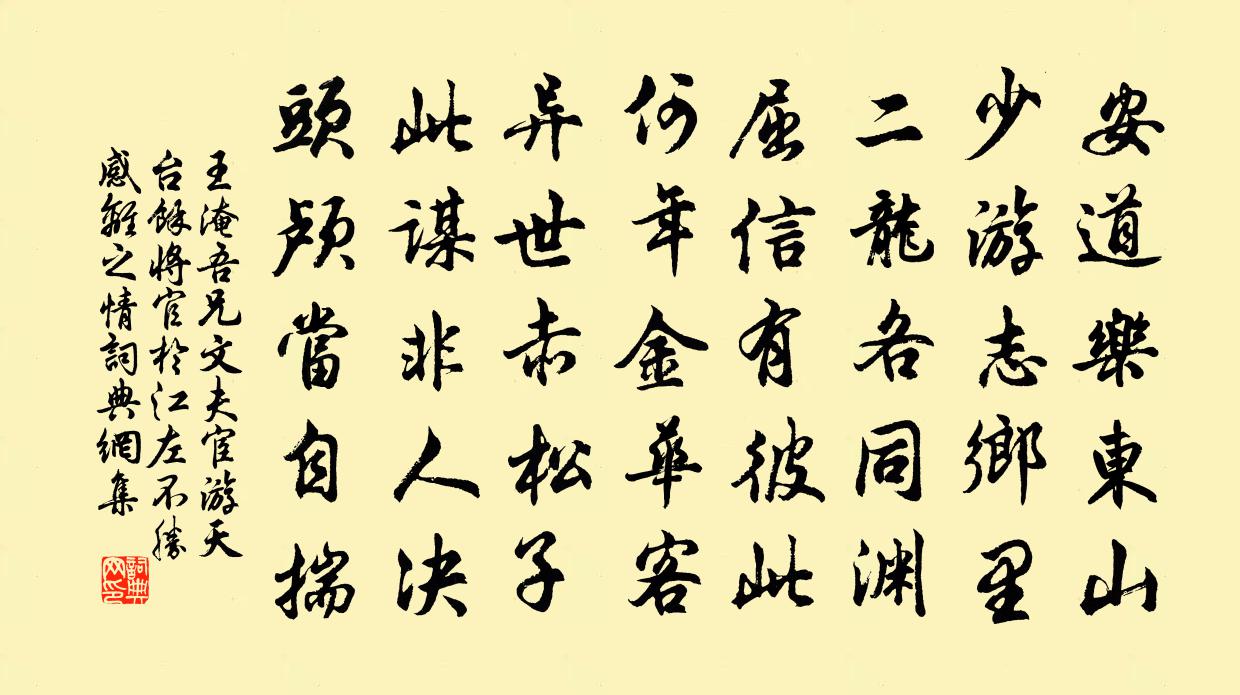 安道樂東山
少游志鄉里
二龍各同渊
屈信有彼此
何年金華客
异世赤松子
此謀非人决
頭顱當自揣
王淹吾兄文夫宦游天
台餘將官於江左不勝
感離之情詞典網集
詞典网印